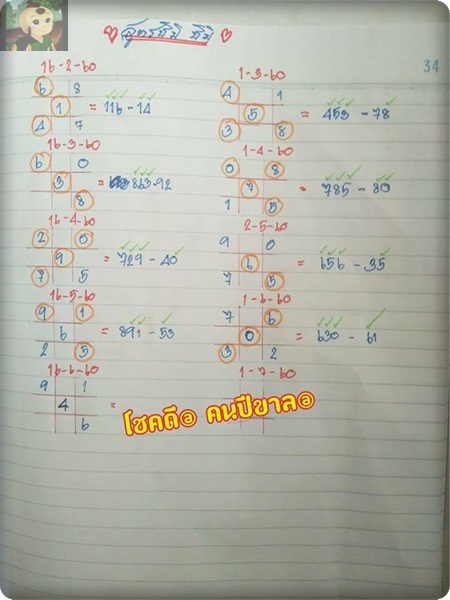 สูตรกิมิ กิมิ
34
16-2-60
6 8
1 = 116-14
4 7
16-3-60
6 0
3 = 863-92
8
16-4-60
2 0
9 = 729-40
7 5
16-5-60
9 1
6 = 891-53
2 5
16-6-60
9 1
4 =
6
1-3-60
4 1
5 = 453-78
3 8
1-4-60
0 8
7 = 785-80
1 5
2-5-60
9 0
6 = 656-35
7 5
1-6-60
7 6
0 = 630-61
3 2
1-7-60
โชคดี@ คนปีขาล@